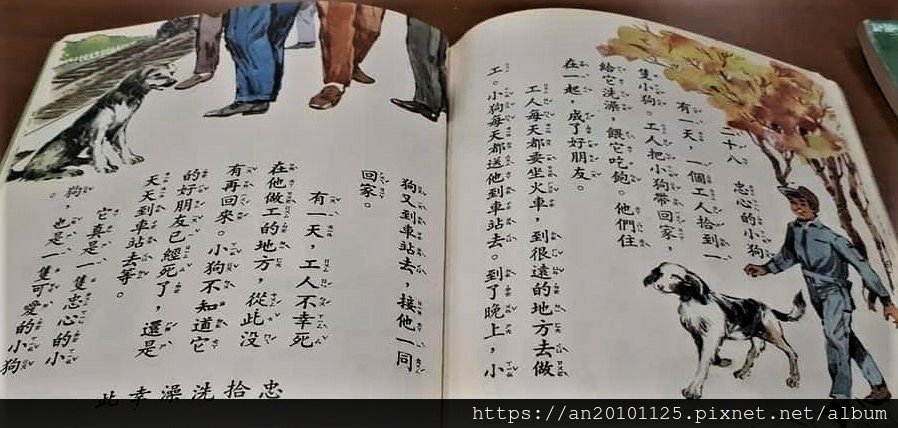 二十八　忠心的小狗
有一天，一個工人拾到一
隻小狗。工人把小狗帶回家，
給它洗澡，餵它吃飽。他們住
在一起，成了好朋友。
工人每天都要坐火車，到很遠的地方去做
工。小狗每天都送他到車站去。到了晚上，小
狗又到車站去，接他一同
回家。
有一天，工人不幸死
在他做工的地方，從此沒
有再回來。小狗不知道它
的好朋友已經死了，還是
天天到車站去等。
它真是一隻忠心的小
狗，也是一隻可愛的小狗
。
忠拾洗澡幸此
https://an20101125.pixnet.net/album